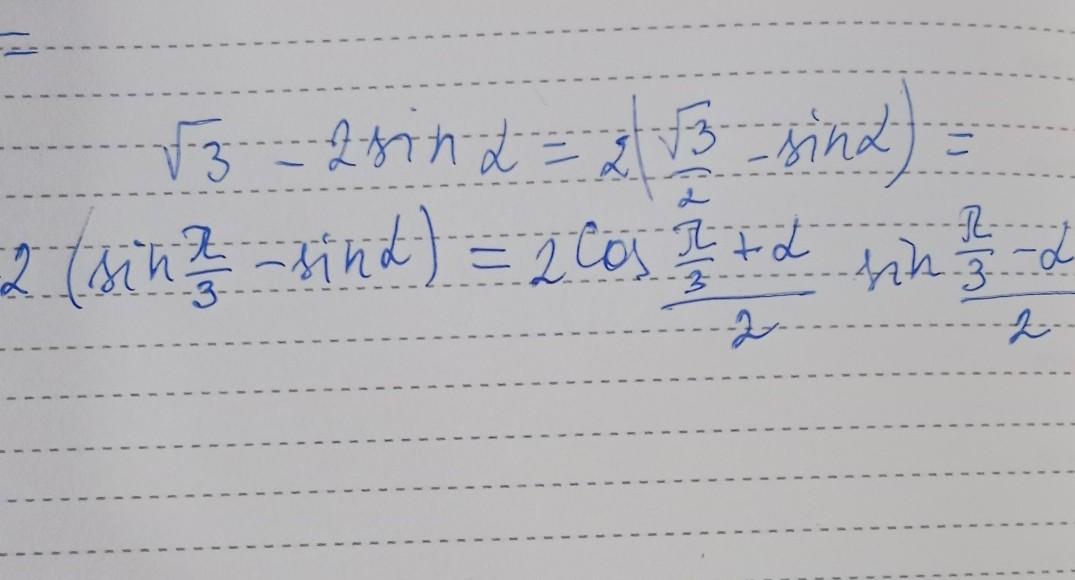 =
√3 - 2 sin α = 2(√3/2 - sin α) =
2 (sin π/3 - sin α) = 2 Cos (π/3 + α)/2 sin (π/3 - α)/2